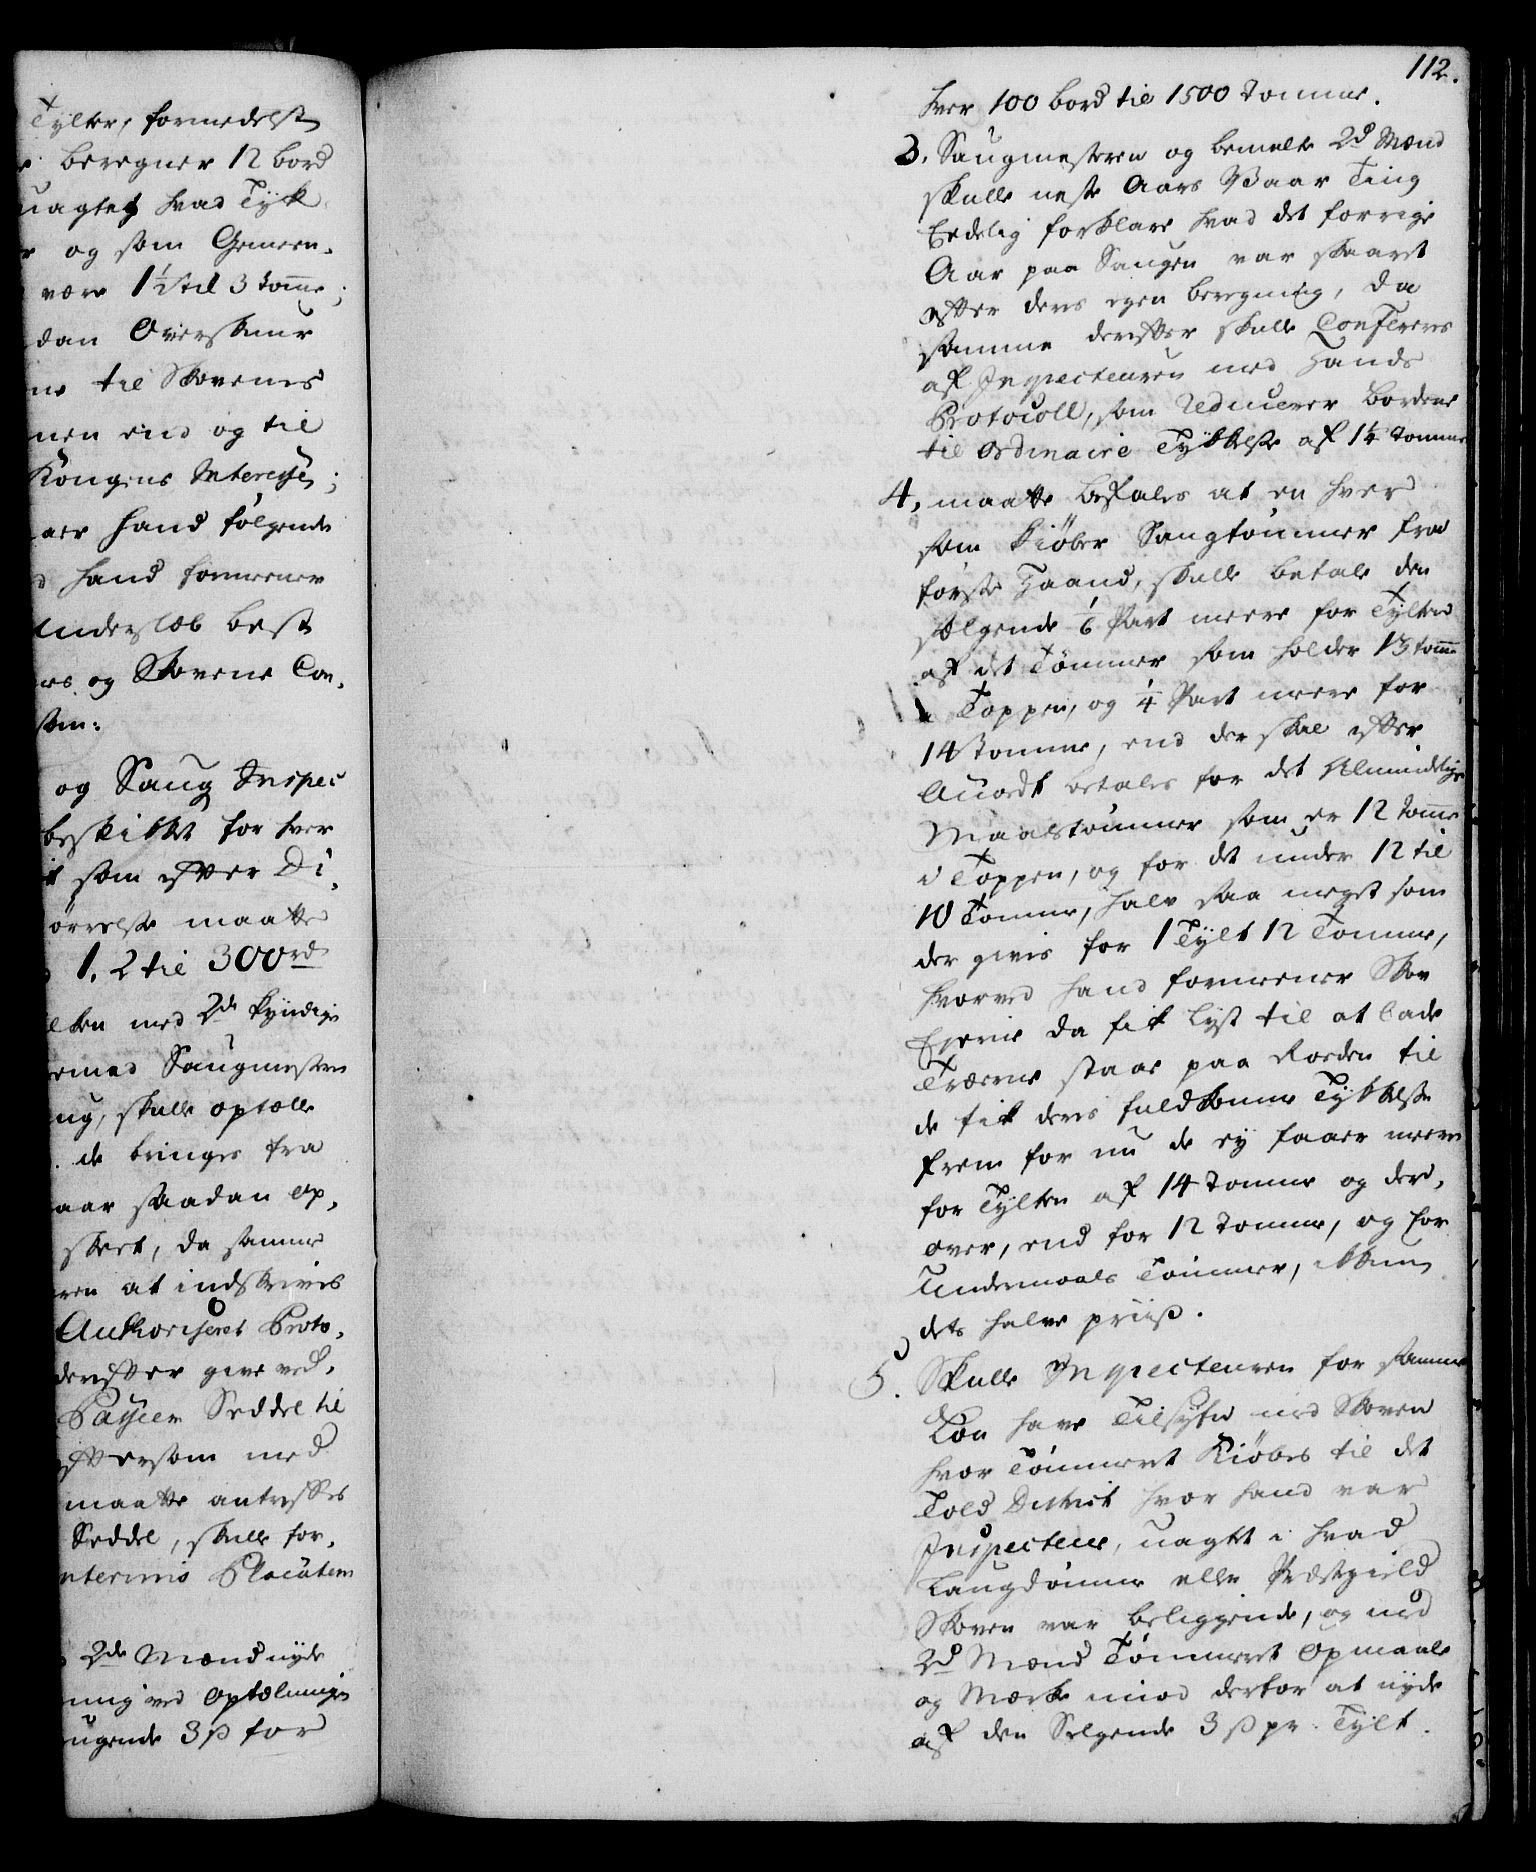 Tylter, formedelst
beregner 12 bord
uagtet hvad Tyk
og som Gemeen¬
være 1½ til 3 tomme;
dan Overskuur
til Skovenes
men end og til
Kongens Interesse;
hand følgende
hand formeener
Underslæb best
og Skovene Con¬
som:
og Saug Inspec
beskikket for hver
som efter Di¬
ørrelse maatte
1. 2 til 300 rd
med 2de kyndige
Saugmesteren
skulle optælle
de bringes fra
aar saadan op¬
skeet, da samme
at indskrives
Authoriseret Proto¬
derefter give ved¬
Passeer Seddel til
eftersom med
maatte antreffes
Seddel, skulle for¬
nterims Placaten
2de Mænd nyde
ved Optælningen
ugende 3 ß for
112.
hver 100 bord til 1500 tomme.
3. Saugmesteren og bemelte 2d Mænd
skulle neste Aars Vaar Ting
Eedelig forklare hvad det forrige
Aar paa Saugen var skaaret
efter deres egen beregning, da
samme derefter skulle Confereres
af Inspecteuren med Hands
Protocoll, som reducerer Bordene
til ordinaire Tykkelse af 1¼ tomme
4. maatte befales at en hver
som kiøber Saugtømmer fra
første Haand, skulle betale den
sælgende 1/6 Part meere for Tylten
af det Tømmer som holder 13 tomme
i Toppen, og ¼ Part meere for
14 Tomme, end der skal efter
Accordt betales for det Almindelige
Maalstømmer som er 12 tomme
i Toppen, og for det under 12 til
10 Tomme, halv saa meget som
der gives for 1 Tylt 12 Tomme,
hvorved hand formeener Skov
Eyerne da fik Lyst til at lade
Træerne staae paa Roeden til
de fik deres fuldkomne Tykkelse
frem for nu de ey faaer meere
for Tylten af 14 Tomme og der¬
over, end for 12 Tomme, og for
Undermaals Tømmer, ikkun
dets halve priiß.
5. Skulle Inspecteuren for samme
Løn have Tilsyn med Skoven
hvor Tømmeret Kiøbes til det
Told District hvor hand var
Inspecteur, uagtet i hvad
Laugdømme eller Præstegield
Skoven var beliggende, og med
2d Mænd Tømmeret Opmaale
og Mærke imod derfor at nyde
af den Selgende 3 ß pr. Tylt.